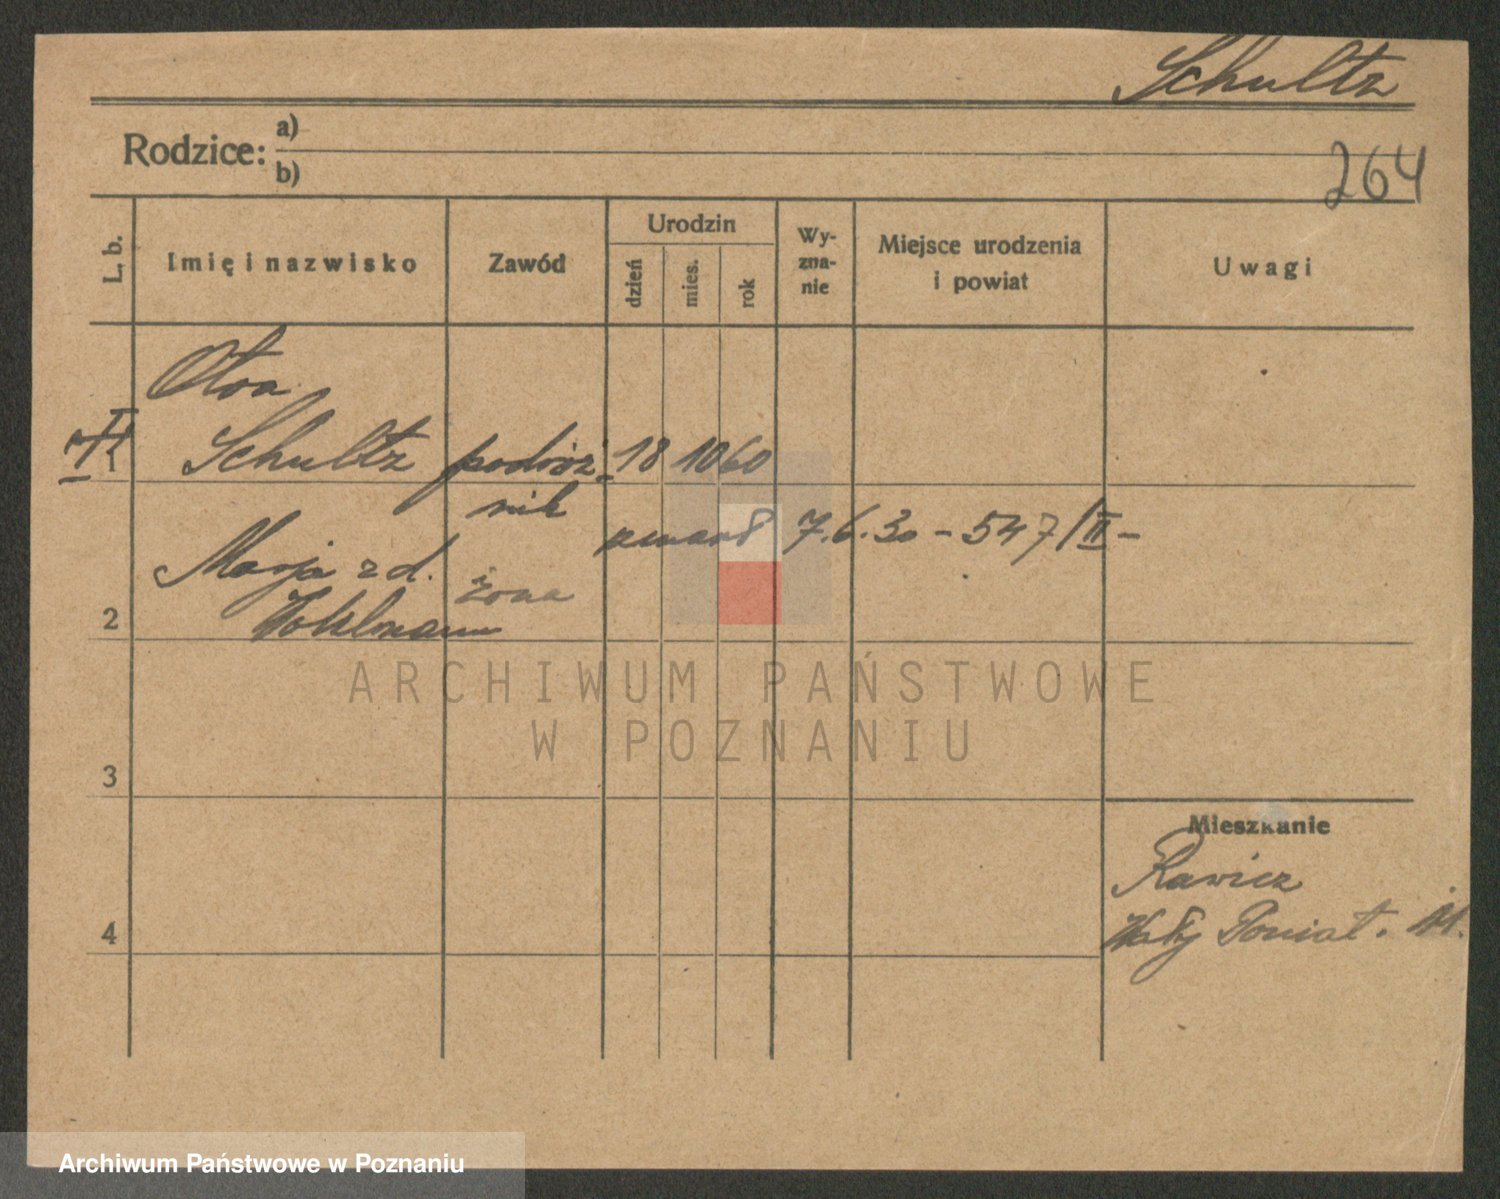 Schultz
Rodzice: a)
b)
264
L. b.
Imię i nazwisko
Zawód
Urodzin
dzień
mies.
rok
Wy-
zna-
nie
Miejsce urodzenia
i powiat
Uwagi
1
Schultz podróż- 18 10 60
nik
zmarł 7.6.30 - 547/II -
Marja z d. żona
2
3
4
Mieszkanie
Rawicz
Wały Poniat.
ARCHIWUM PAŃSTWOWE
W POZNANIU
Archiwum Państwowe w Poznaniu